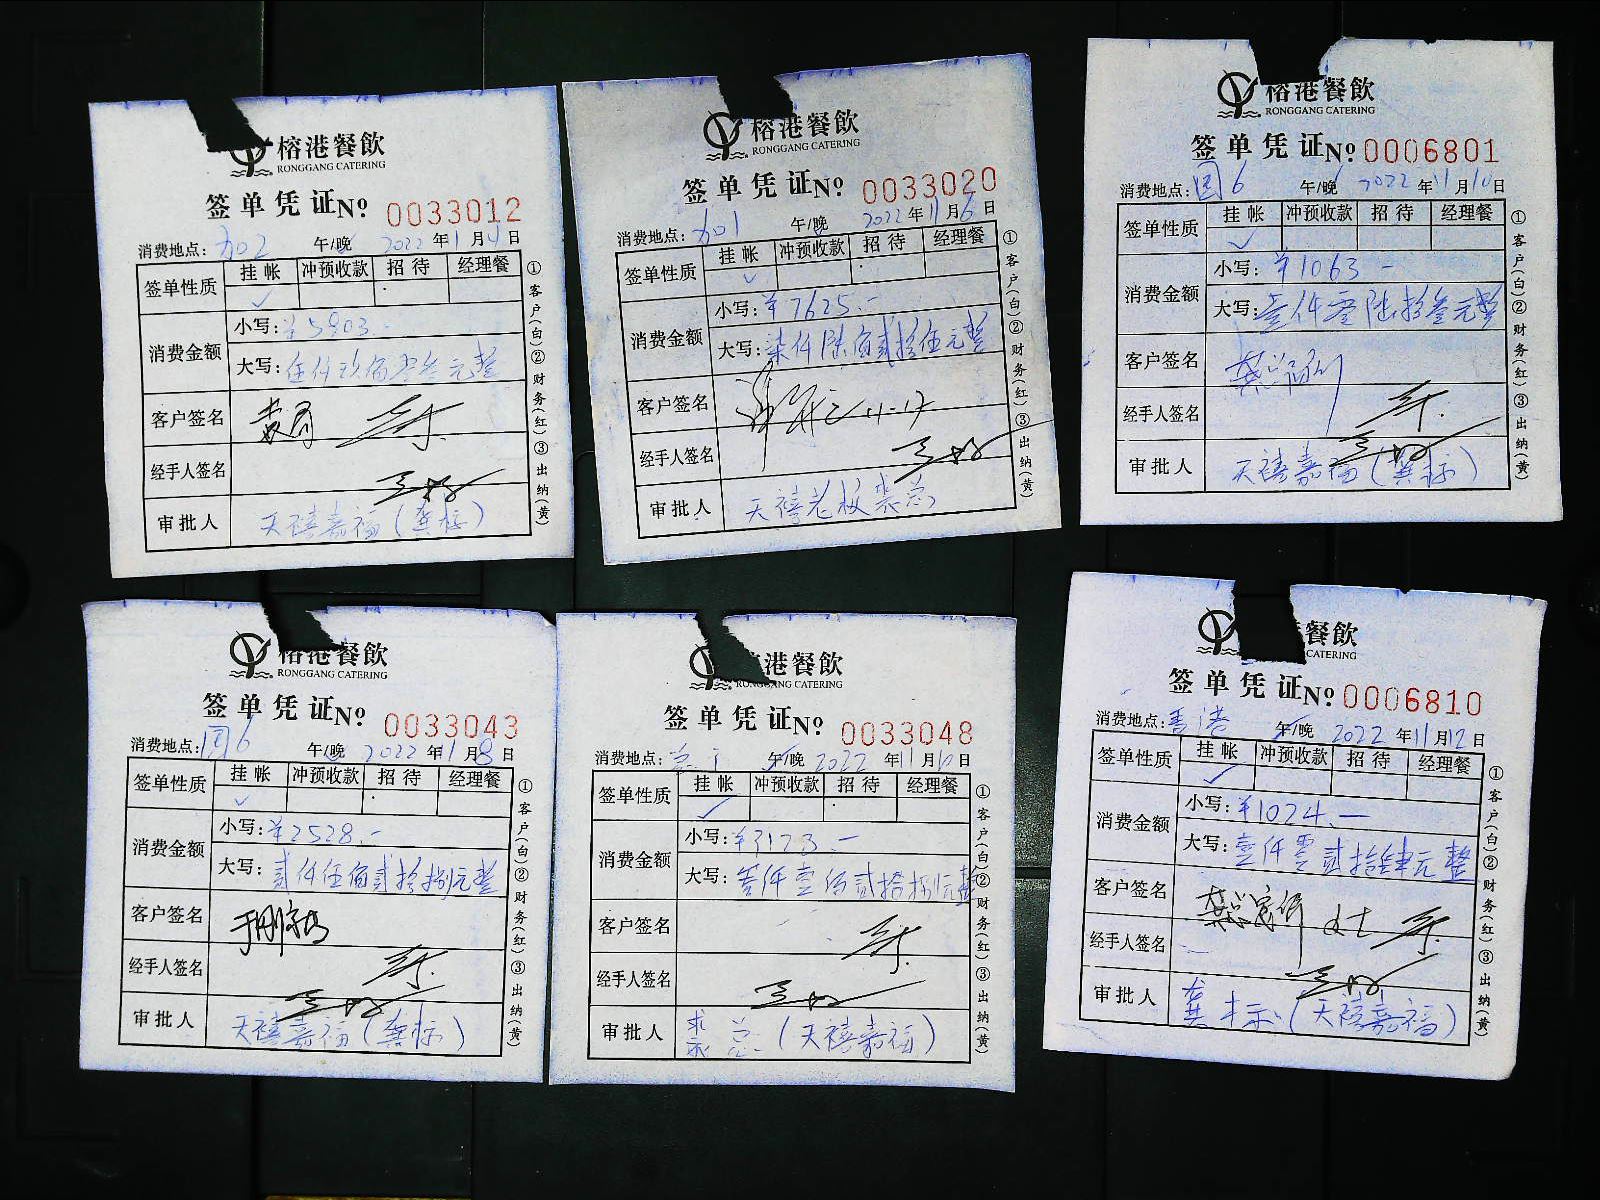 榕港餐飲
RONGGANG CATERING
签单凭证 No 0033012
消费地点: 加02 午/晚 2022年11月4日
签单性质 挂帐 冲预收款 招待 经理餐
消费金额
小写: ¥5903.-
大写: 伍仟玖佰零叁元整
客户签名
经手人签名
审批人 天禧嘉福(龚标)
①客户(白)②财务(红)③出纳(黄)
榕港餐飲
RONGGANG CATERING
签单凭证 No 0033020
消费地点: 加01 午/晚 2022年11月6日
签单性质 挂帐 冲预收款 招待 经理餐
消费金额
小写: ¥7625.-
大写: 柒仟陆佰贰拾伍元整
客户签名 11-17
经手人签名
审批人 天禧老板裘总
①客户(白)②财务(红)③出纳(黄)
榕港餐飲
RONGGANG CATERING
签单凭证 No 0006801
消费地点: 园6 午/晚 2022年11月10日
签单性质 挂帐 冲预收款 招待 经理餐
消费金额
小写: ¥1063.-
大写: 壹仟零陆拾叁元整
客户签名
经手人签名
审批人 天禧嘉福(龚标)
①客户(白)②财务(红)③出纳(黄)
榕港餐飲
RONGGANG CATERING
签单凭证 No 0033043
消费地点: 园6 午/晚 2022年11月8日
签单性质 挂帐 冲预收款 招待 经理餐
消费金额
小写: ¥2528.-
大写: 贰仟伍佰贰拾捌元整
客户签名
经手人签名
审批人 天禧嘉福(龚标)
①客户(白)②财务(红)③出纳(黄)
港餐飲
RONGGANG CATERING
签单凭证 No 0033048
消费地点: 午/晚 2022年11月10日
签单性质 挂帐 冲预收款 招待 经理餐
消费金额
小写:
大写: 叁仟壹佰贰拾捌元整
客户签名
经手人签名
审批人 裘总(天禧嘉福)
①客户(白)②财务(红)③出纳(黄)
餐飲
CATERING
签单凭证 No 0006810
消费地点: 香港 午/晚 2022年11月12日
签单性质 挂帐 冲预收款 招待 经理餐
消费金额
小写: ¥1024.-
大写: 壹仟零贰拾肆元整
客户签名
经手人签名
审批人 龚标(天禧嘉福)
①客户(白)②财务(红)③出纳(黄)